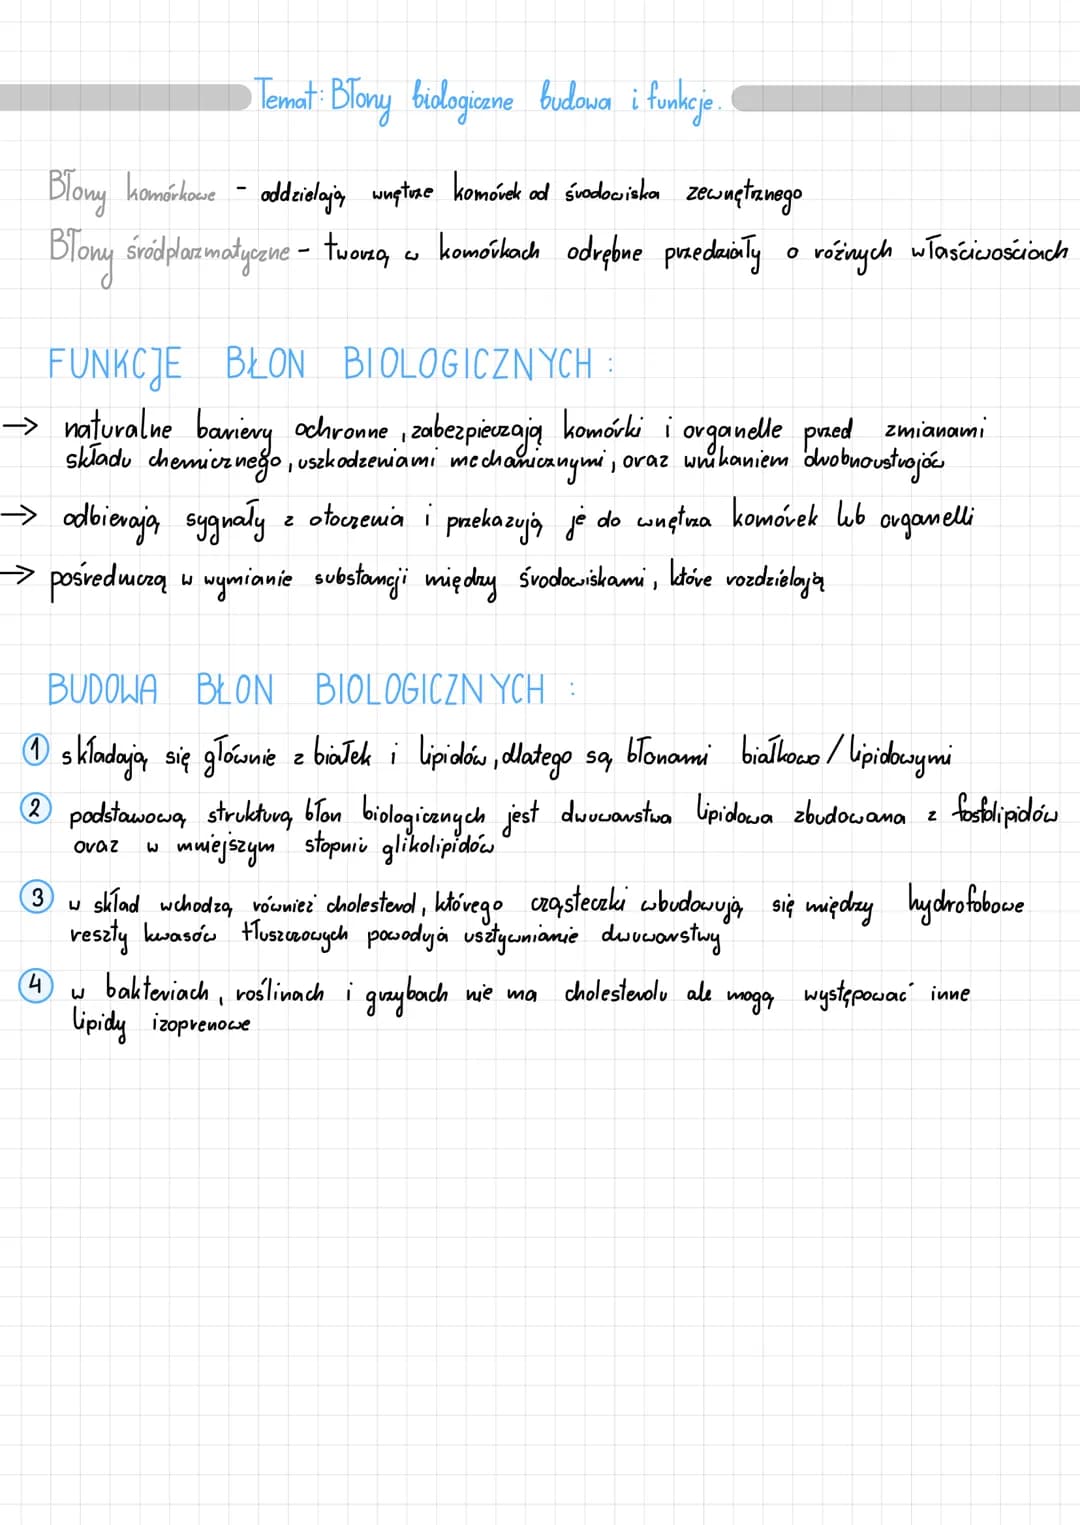 Temat: Błony biologiczne budowa i funkcje.
Błony komórkowe - oddzielają wnętrze komórek od środowiska zewnętrznego
Błony śródplazmatyczne - tworzą w komórkach odrębne przedziały o różnych właściwościach
FUNKCJE BŁON BIOLOGICZNYCH :
→ naturalne bariery ochronne, zabezpieczają komórki i organelle przed zmianami
składu chemicznego, uszkodzeniami mechanicznymi, oraz wnikaniem drobnoustrojów
→ odbierają sygnały z otoczenia i przekazują je do wnętrza komórek lub organelli
→ pośredniczą w wymianie substancji między środowiskami, które rozdzielają
BUDOWA BŁON BIOLOGICZNYCH :
1 składają się głównie z białek i lipidów, dlatego są błonami białkowo / lipidowymi
2 podstawową strukturą błon biologicznych jest dwuwarstwa lipidowa zbudowana z fosfolipidów
oraz w mniejszym stopniu glikolipidów
3 w skład wchodzą również cholesterol, którego cząsteczki wbudowują się między hydrofobowe
reszty kwasów tłuszczowych powodują usztywnianie dwuwarstwy
4 w bakteriach, roślinach i grzybach nie ma cholesterolu ale mogą występować inne
lipidy izoprenowe